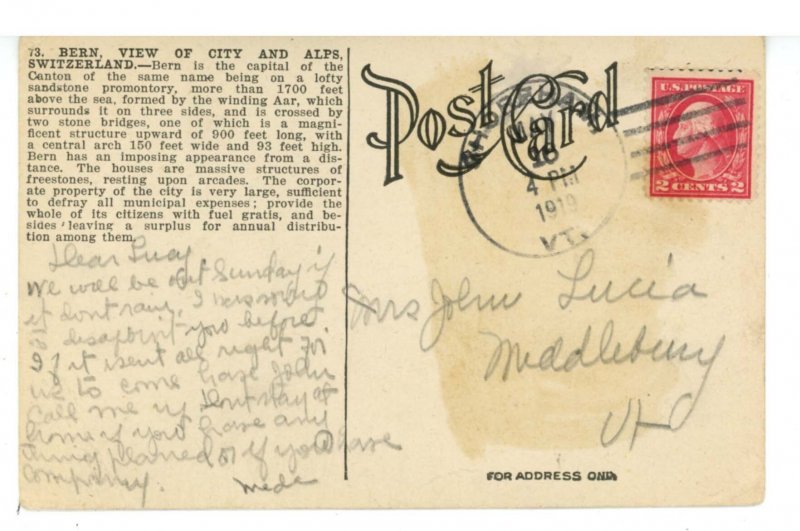 73. BERN, VIEW OF CITY AND ALPS,
SWITZERLAND.—Bern is the capital of the
Canton of the same name being on a lofty
sandstone promontory, more than 1700 feet
above the sea, formed by the winding Aar, which
surrounds it on three sides, and is crossed by
two stone bridges, one of which is a magni-
ficent structure upward of 900 feet long, with
a central arch 150 feet wide and 93 feet high.
Bern has an imposing appearance from a dis-
tance. The houses are massive structures of
freestones, resting upon arcades. The corpor-
ate property of the city is very large, sufficient
to defray all municipal expenses; provide the
whole of its citizens with fuel gratis, and be-
sides leaving a surplus for annual distribu-
tion among them.
Dear Lucy
we will be out Sunday if
it dont rain, I was sorry
to disapoint you before
If it isent all right for
us to come have John
Call me up dont stay at
home if you have any
thing planed or if you have
company.
Mede
Post Card
MAY
16
4 PM
1919
VT.
U.S. POSTAGE
2 CENTS 2
Mrs John Lucia
Middlebury
Vt
FOR ADDRESS ONLY